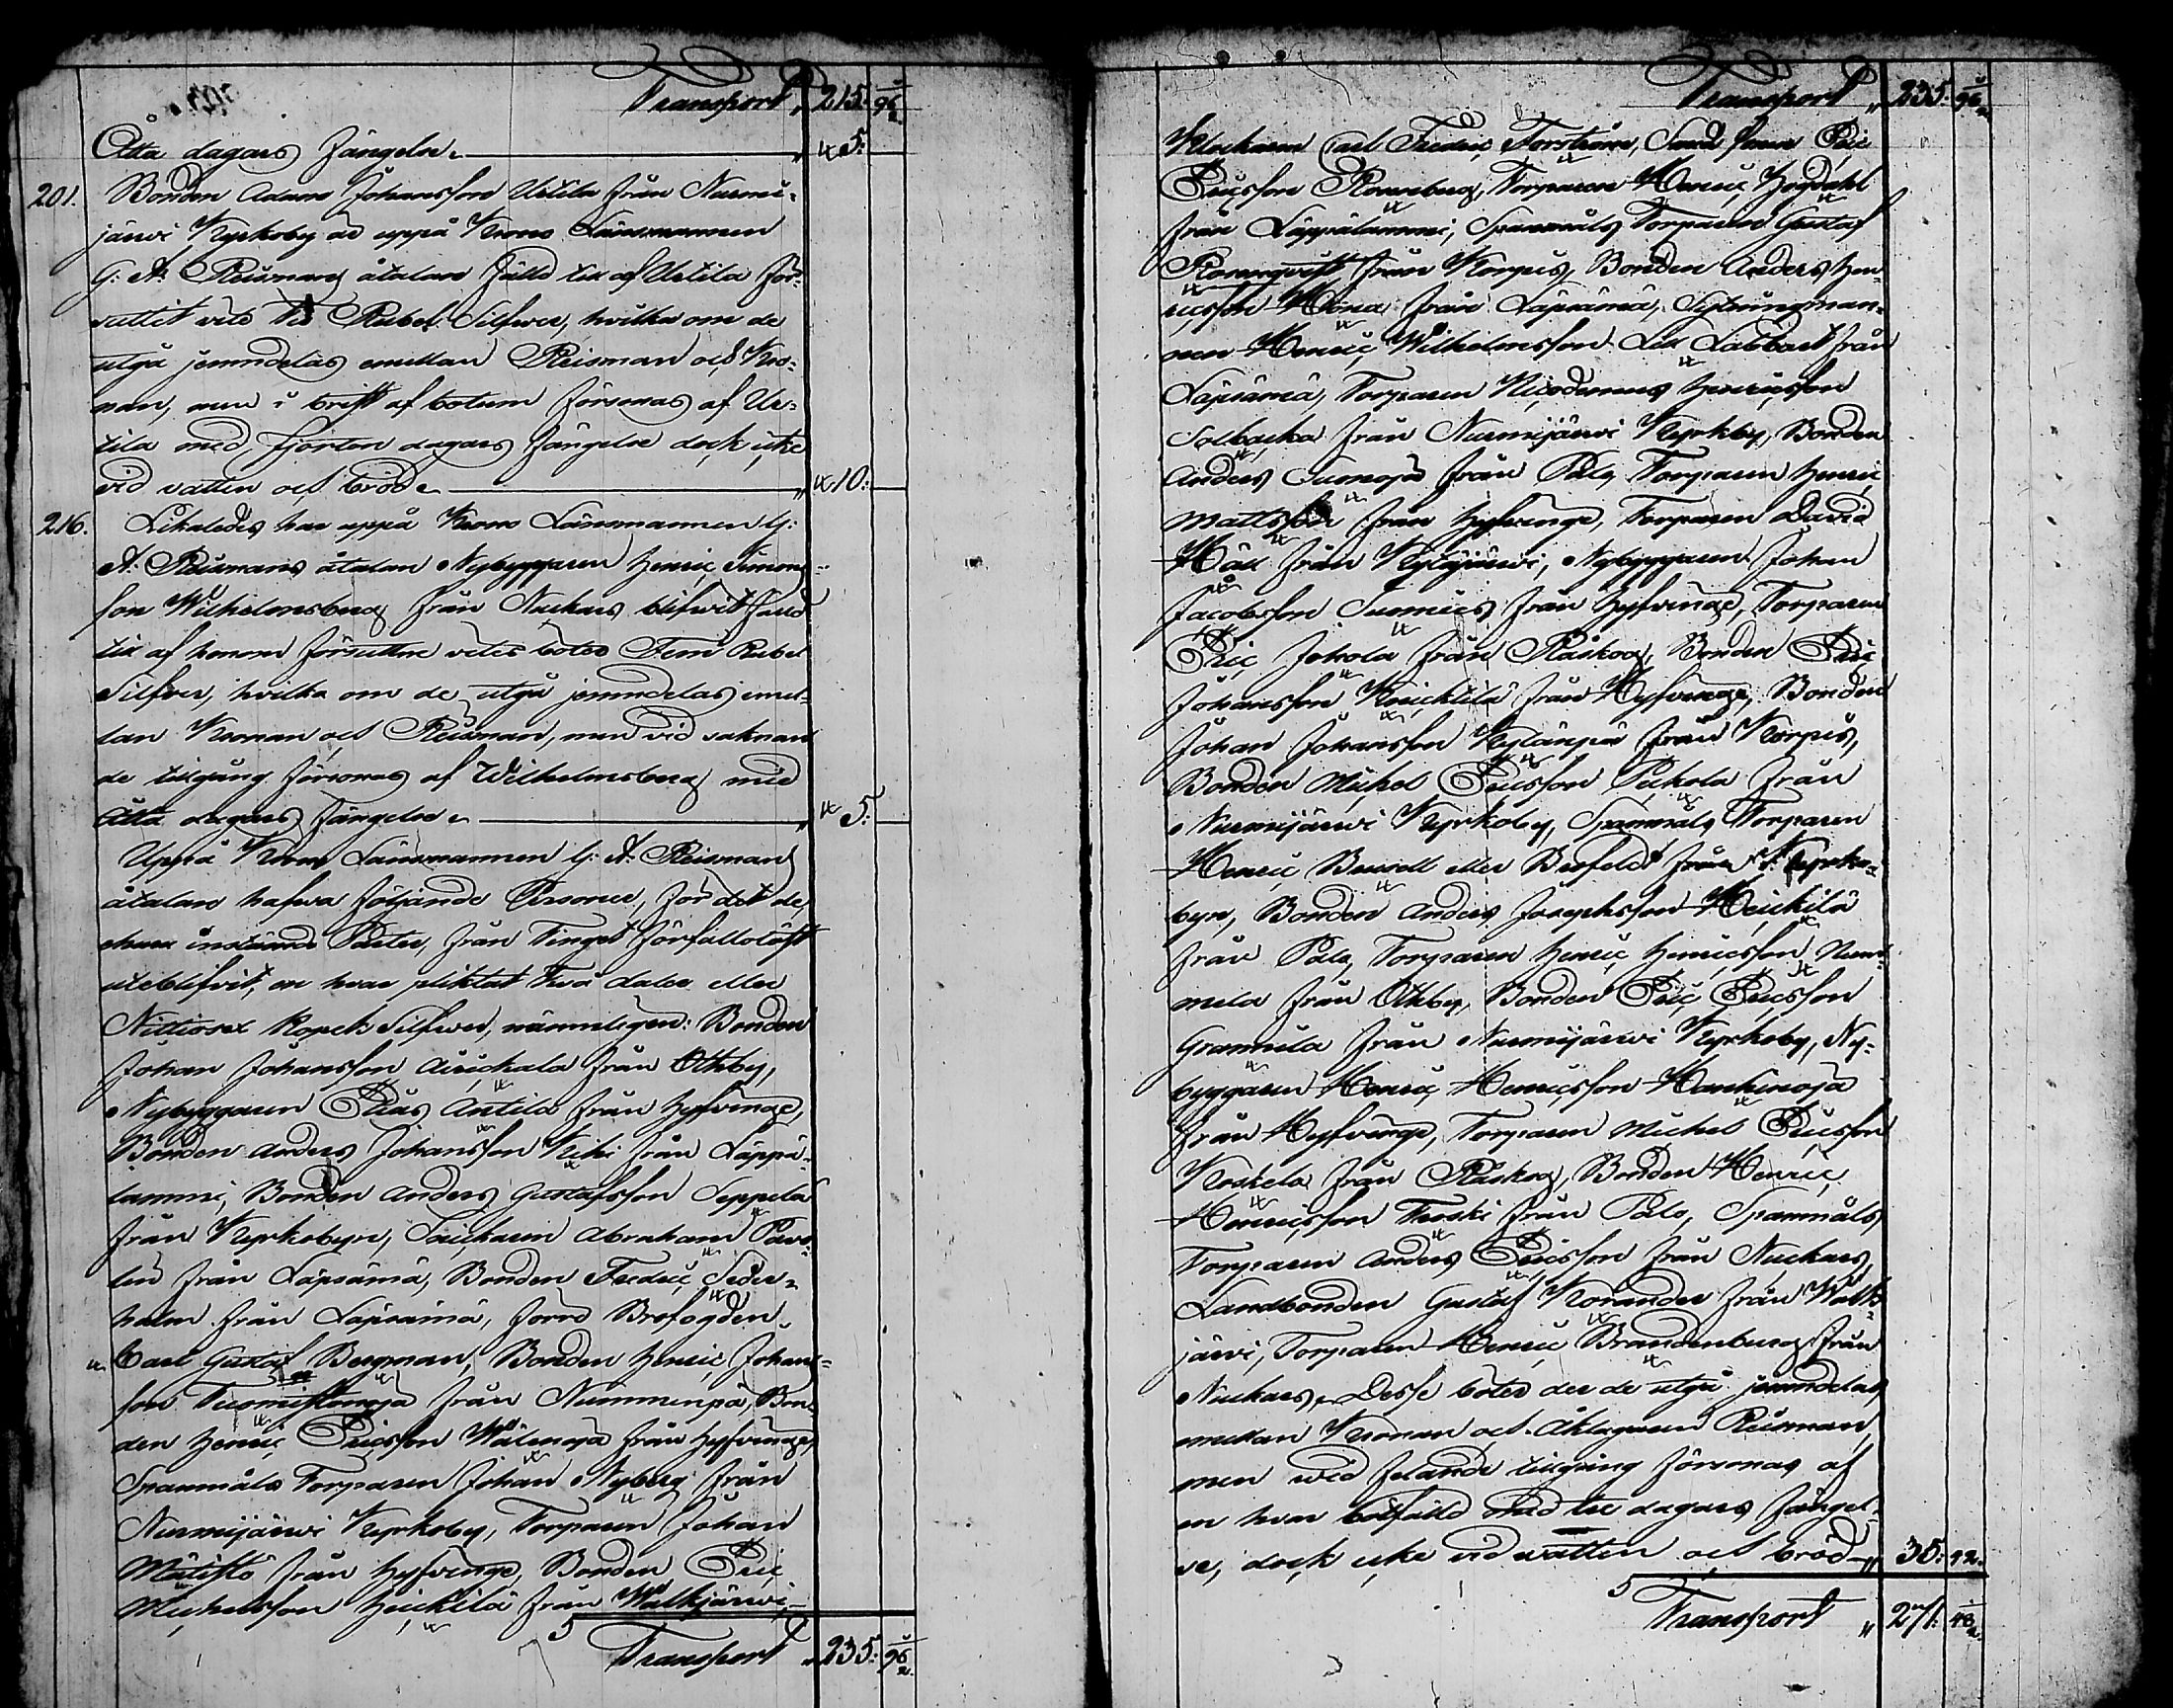 Transport „ 215. 96
Åtta dagars fängelse. „ 5.
201. Bonden Adam Johansson Uotila från Nurmi-
järwi Kyrkoby är uppå Krono Länsmannen
G: A: Reismans åtalan fälld till af Uotila för-
Rubel Silfwer, hvilka om de
utgå jemndelas emellan Reisman och Kro-
nan, men i brist af botum försonas af Uo-
tila med fjorton dagars fängelse dock icke
vid vatten och bröd. „ 10.
216. Likaledes har uppå Krono Länsmannen G:
A. Reismans åtalan Nybyggaren Henric Simons-
son Wilhelmsberg från Nuckars blifwit fälld
till af honom försuttne vites böter Fem Rubel
Silfver, hvilka om de utgå jemndelas emel-
lan Kronan och Reisman, men vid saknan-
de tillgång försonas af Wilhelmsberg med
åtta dagars fängelse. „ 5.
Uppå Krono Länsmannen G: A: Reisman
åtalan hafwa följande Personer, för det de,
ehuru Parter, från Tinget förfallolöst
uteblifvit, en hvar pliktat Två daler eller
Nittiosex kopek Silfwer, nämnligen: Bonden
Johan Johansson från Othby,
Nybyggaren Elias Antila från Hyfvinge,
Bonden Anders Johansson Kihi från Läppä-
lammi, Bonden Anders Gustafsson Seppelä
från Kyrkobyn, Abraham
från Läpsämä, Bonden Fredric Seder-
holm från Läpsämä, förre Brofogden
Carl Gustaf Bergman, Bonden Henric Johans-
son Tuomistonoja från Nummenpä, Bon-
den Henric Ericsson Wälinoja från Hyfvinge,
Spannmåls Torparen Johan Nyberg från
Nurmijärwi Kyrkoby, Torparen Johan
Mätistö från Hyfvinge, Bonden Eric
Michelsson Heickilä från Walkjärwi,
Transport „ 235. 96
Transport „ 235. 96
Klockaren Carl Fredric Forström, Eric
Ericsson Rosenberg, Torparen Henric Högdahl
från Läppälammi, Spannmåls Torparen Gustaf
från Korpis, Bonden Anders Hen-
ricsson från Läpsämä, Sytningsman-
nen Henric Wilhelmsson från
Läpsämä, Torparen Nicodemus Henricsson
Solbacka från Nurmijärwi Kyrkby, Bonden
Anders Sumoja från Palo, Torparen Henric
Mattsson från Hyfvinge, Torparen David
från Kytäjärwi, Nybyggaren Johan
Jacobsson från Hyfvinge, Torparen
Eric Jokela från Råskog, Bonden Eric
Johansson från Hyfvinge, Bonden
Johan Johansson Kylänpä från Korpis,
Bonden Michel Ericsson Pickola från
Nurmijärwi Kyrkoby, Spannmåls Torparen
Henric eller från N. Kyrko-
byn, Bonden Anders Josephsson Heickilä
från Palo, Torparen Henric Henricsson Num-
mela från Othby, Bonden Eric Ericsson
Gramila från Nurmijärwi Kyrkoby, Ny-
byggaren Henric Henricsson Hankinoja
från Hyfvinge, Torparen Michel Ericsson
Koskela från Råskog, Bonden Henric
Henricsson från Palo, Spannmåls
Torparen Anders Ericsson från Nuckars,
Landbonden Gustaf Korander från Walk-
järwi, Torparen Henric Brandenburg från
Nuckars. Desse böter der de utgå jemndelas
emellan Kronan och Åklagaren Reisman,
men wid felande tillgång försonas af
en hvar botfälld med tre dagars fängel-
se, dock icke vid watten och bröd „ 35. 52
Transport „ 271. 48